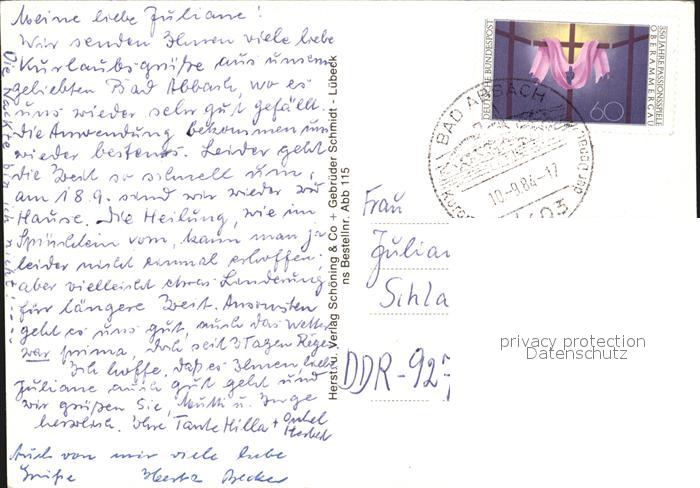 Meine liebe Juliane!
Wir senden Ihnen viele liebe
Kurlaubsgrüße aus unserem
geliebten Bad Abbach, wo es
uns wieder sehr gut gefällt.
Die Anwendung bekommen uns
wieder bestens. Leider geht
die Zeit so schnell um,
am 18.9. sind wir wieder zu
Hause. Die Heilung, wie im
Sprüchlein vorn, kann man ja
leider nicht einmal erhoffen,
aber vielleicht etwas Linderung
für längere Zeit. Ansonsten
geht es uns gut, auch das Wetter
war prima, doch seit 3 Tagen Regen
Ich hoffe, daß es Ihnen, liebe
Juliane auch gut geht und
wir grüßen Sie, Mutti u. Inge
herzlich. Ihre Tante Hilla + Onkel
Herbert
Auch von mir viele liebe
Grüße Herta Becker
Die Nackte bin ich nicht!...
Herst. u. Verlag Schöning & Co + Gebrüder Schmidt - Lübeck
ns Bestellnr. Abb 115
DEUTSCHE BUNDESPOST
350 JAHRE PASSIONSSPIELE
OBERAMMERGAU
60
BAD ABBACH
10-9.84-17
8403
Frau
Julian
Schla
DDR-927
privacy protection
Datenschutz